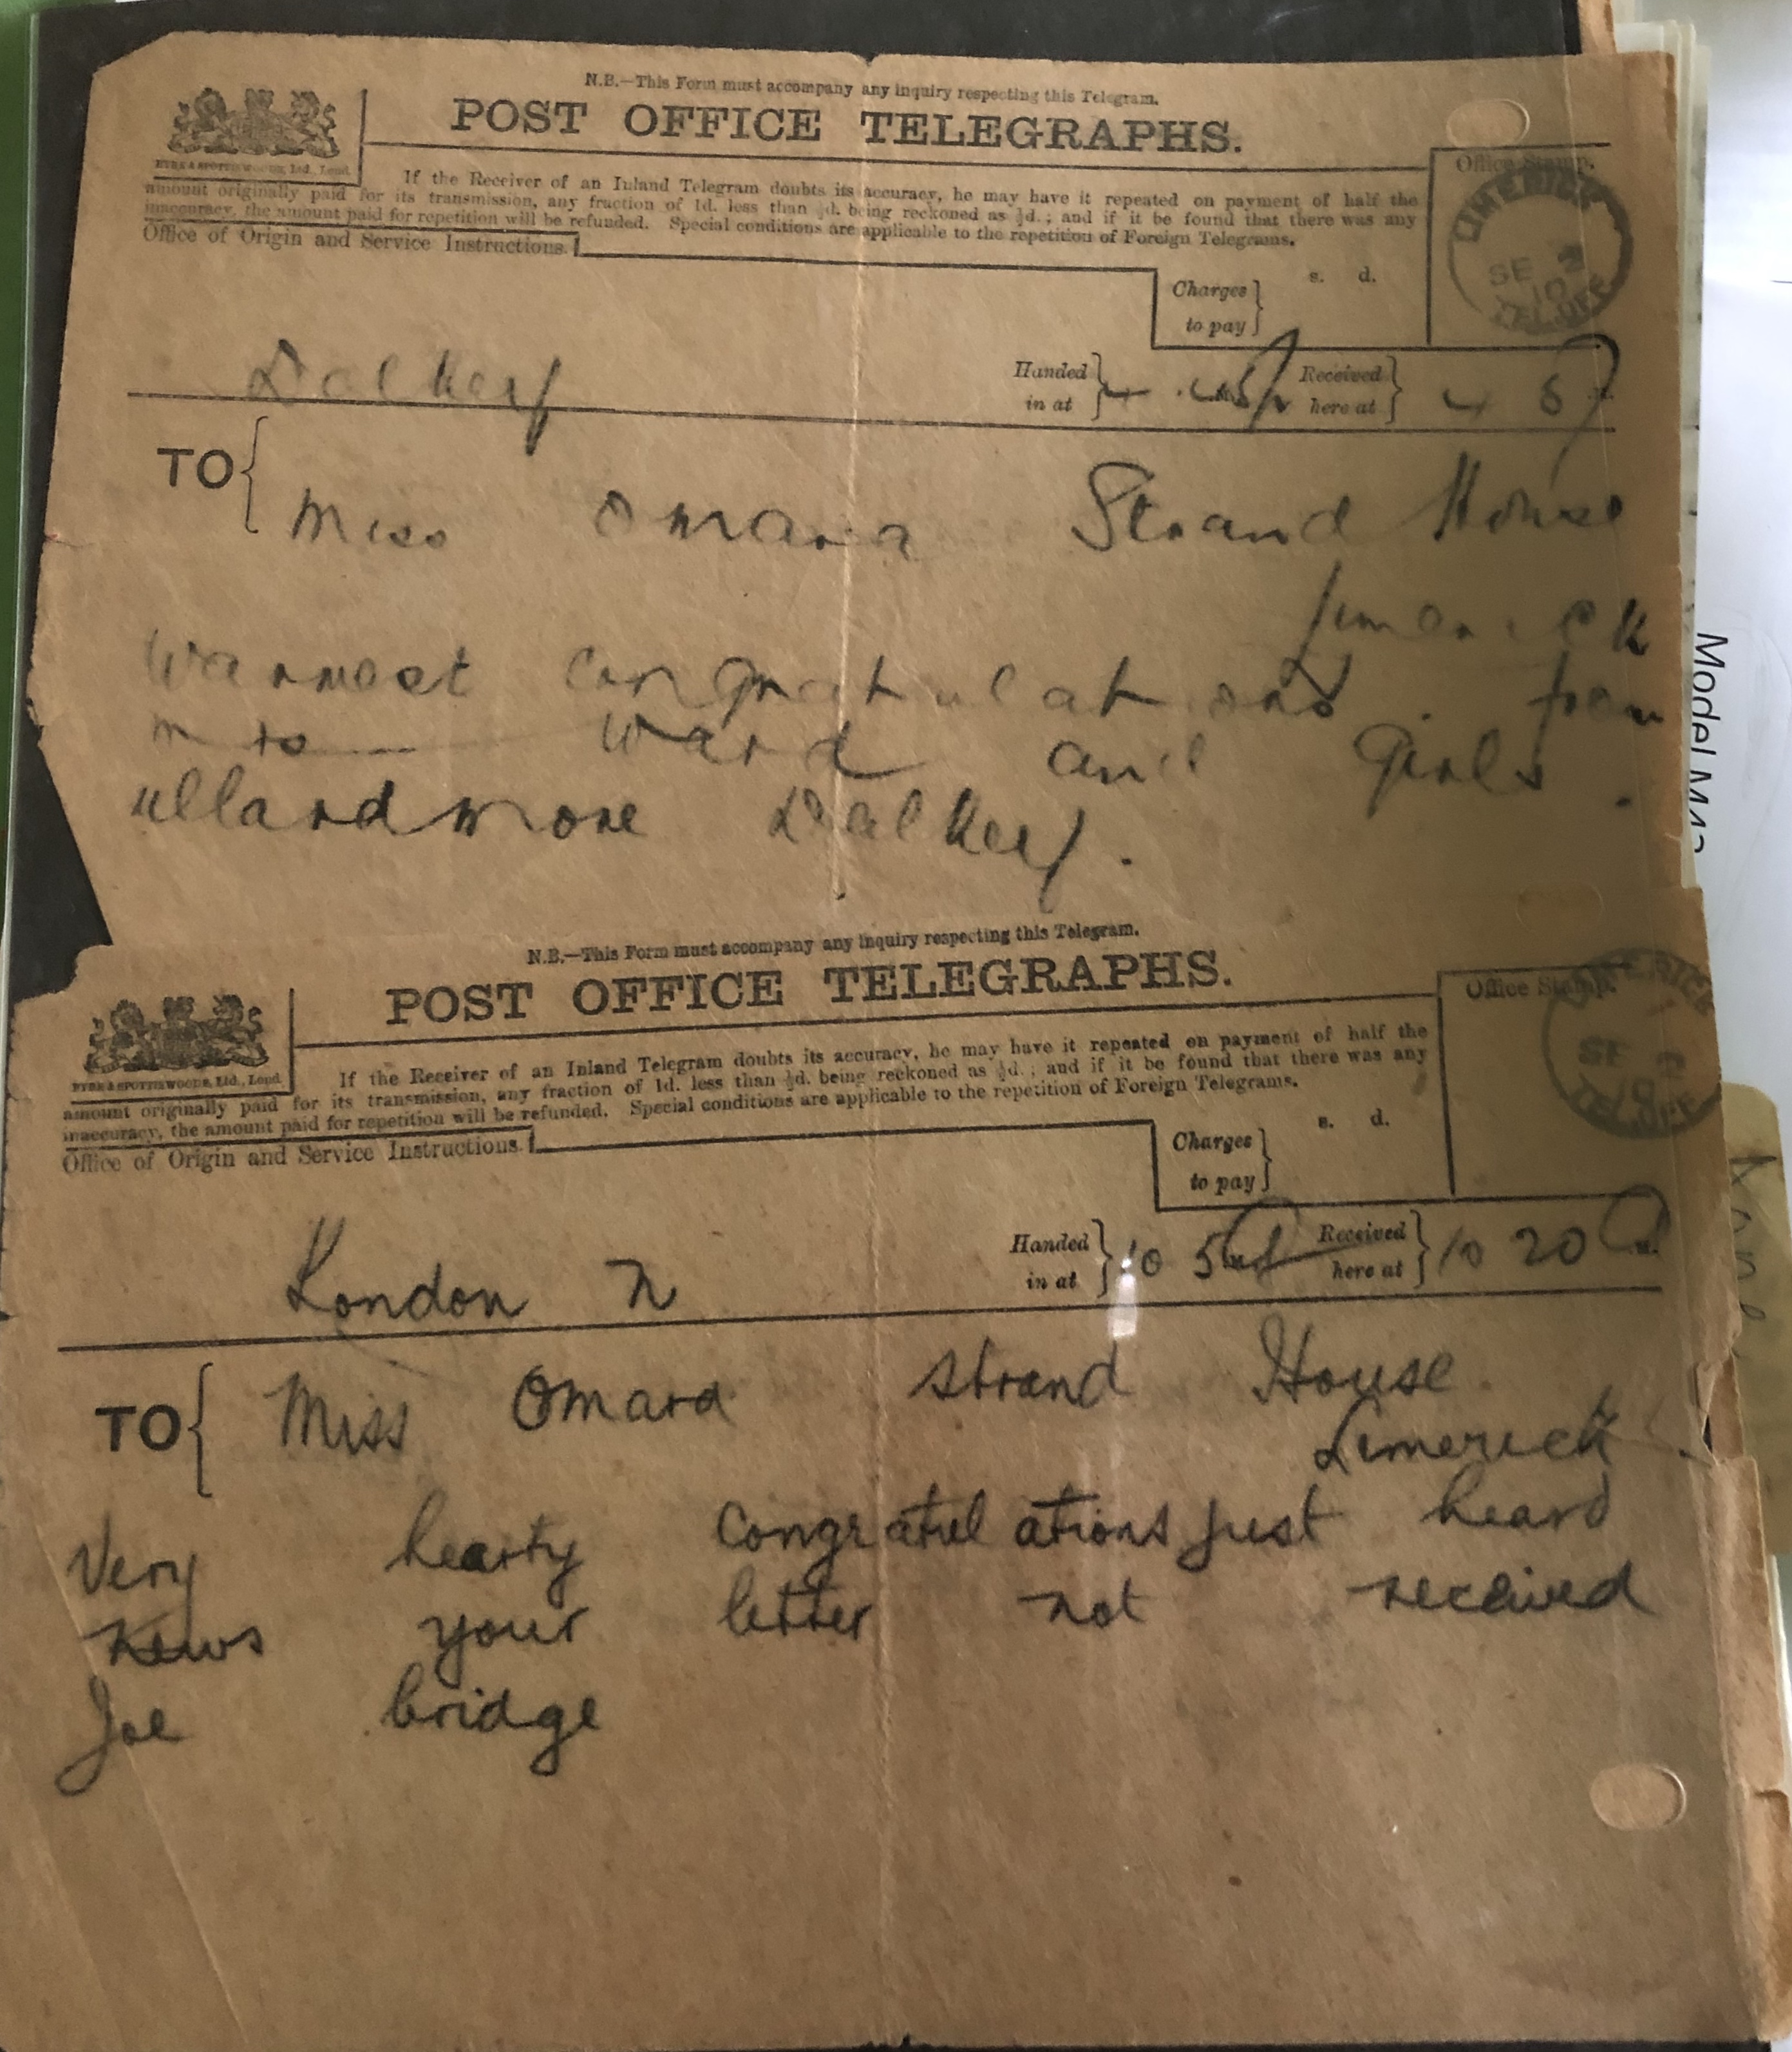 N.B.—This Form must accompany any inquiry respecting this Telegram.
POST OFFICE TELEGRAPHS.
EYRE & SPOTTISWOODE, Ltd., Lond.
If the Receiver of an Inland Telegram doubts its accuracy, he may have it repeated on payment of half the
amount originally paid for its transmission, any fraction of 1d. less than ½d. being reckoned as ½d.; and if it be found that there was any
inaccuracy, the amount paid for repetition will be refunded. Special conditions are applicable to the repetition of Foreign Telegrams.
Office of Origin and Service Instructions.
Office Stamp.
LIMERICK
SE 2
10
TEL. OFF
Charges to pay
s. d.
Dalkey
Handed in at 4 45 Received here at 4 57
TO Miss Omara Strand House
Limerick
Warmest congratulations from
mrs ward and Girls
ullardmore Dalkey.
N.B.—This Form must accompany any inquiry respecting this Telegram.
POST OFFICE TELEGRAPHS.
EYRE & SPOTTISWOODE, Ltd., Lond.
If the Receiver of an Inland Telegram doubts its accuracy, he may have it repeated on payment of half the
amount originally paid for its transmission, any fraction of 1d. less than ½d. being reckoned as ½d.; and if it be found that there was any
inaccuracy, the amount paid for repetition will be refunded. Special conditions are applicable to the repetition of Foreign Telegrams.
Office of Origin and Service Instructions.
Office Stamp.
SE 2
10
TEL. OFF
Charges to pay
s. d.
London N
Handed in at 10 5 Received here at 10 20 m.
TO Miss Omara Strand House
Limerick
Very hearty Congratulations just heard
news your letter not received
Joe bridge
Model M